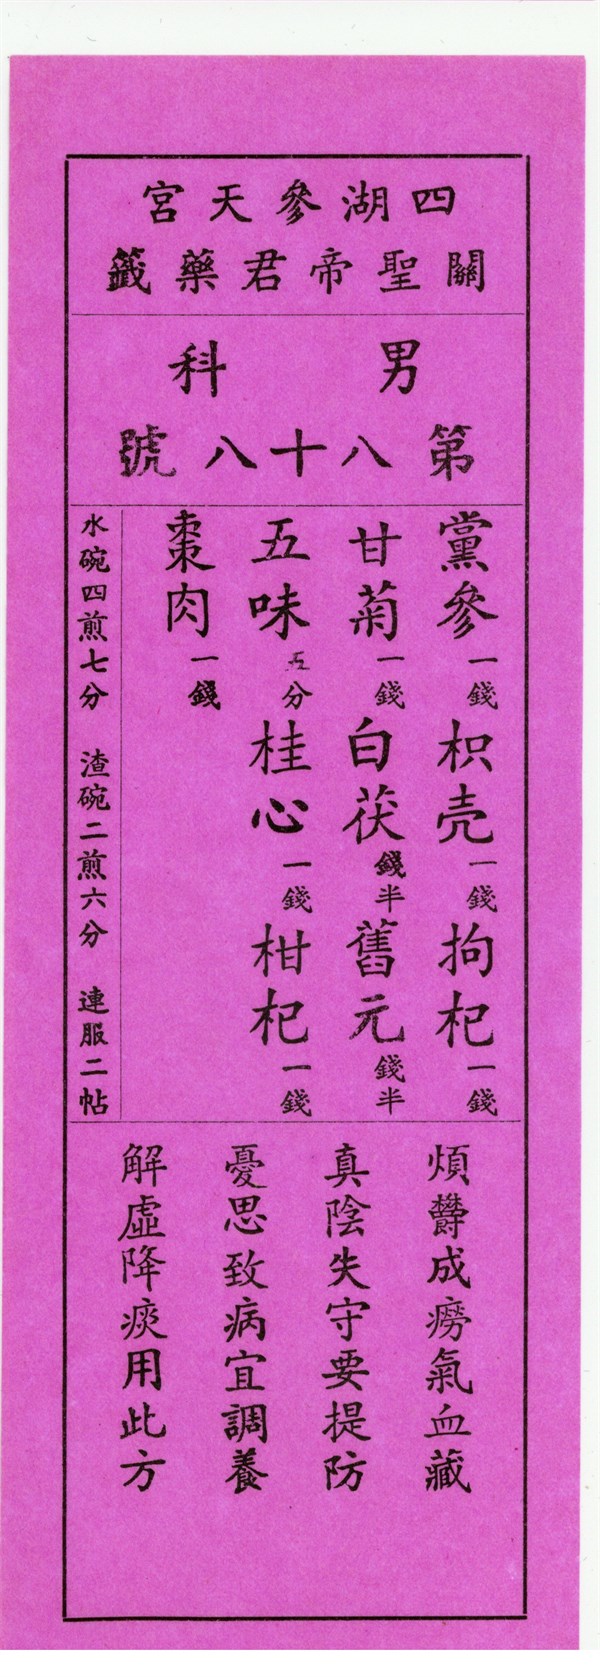 四湖參天宮
關聖帝君藥籤
男科
第八十八號
黨參一錢 枳壳一錢 拘杞一錢
甘菊一錢 白茯錢半 舊元錢半
五味五分 桂心一錢 柑杞一錢
棗肉一錢
水碗四煎七分 渣碗二煎六分 連服二帖
煩欝成癆氣血藏
真陰失守要提防
憂思致病宜調養
解虛降痰用此方